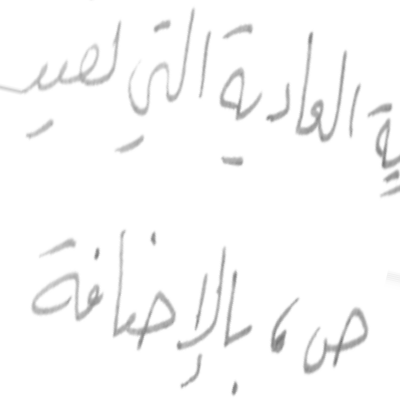 العادية التي تصيب
ص، بالإضافة